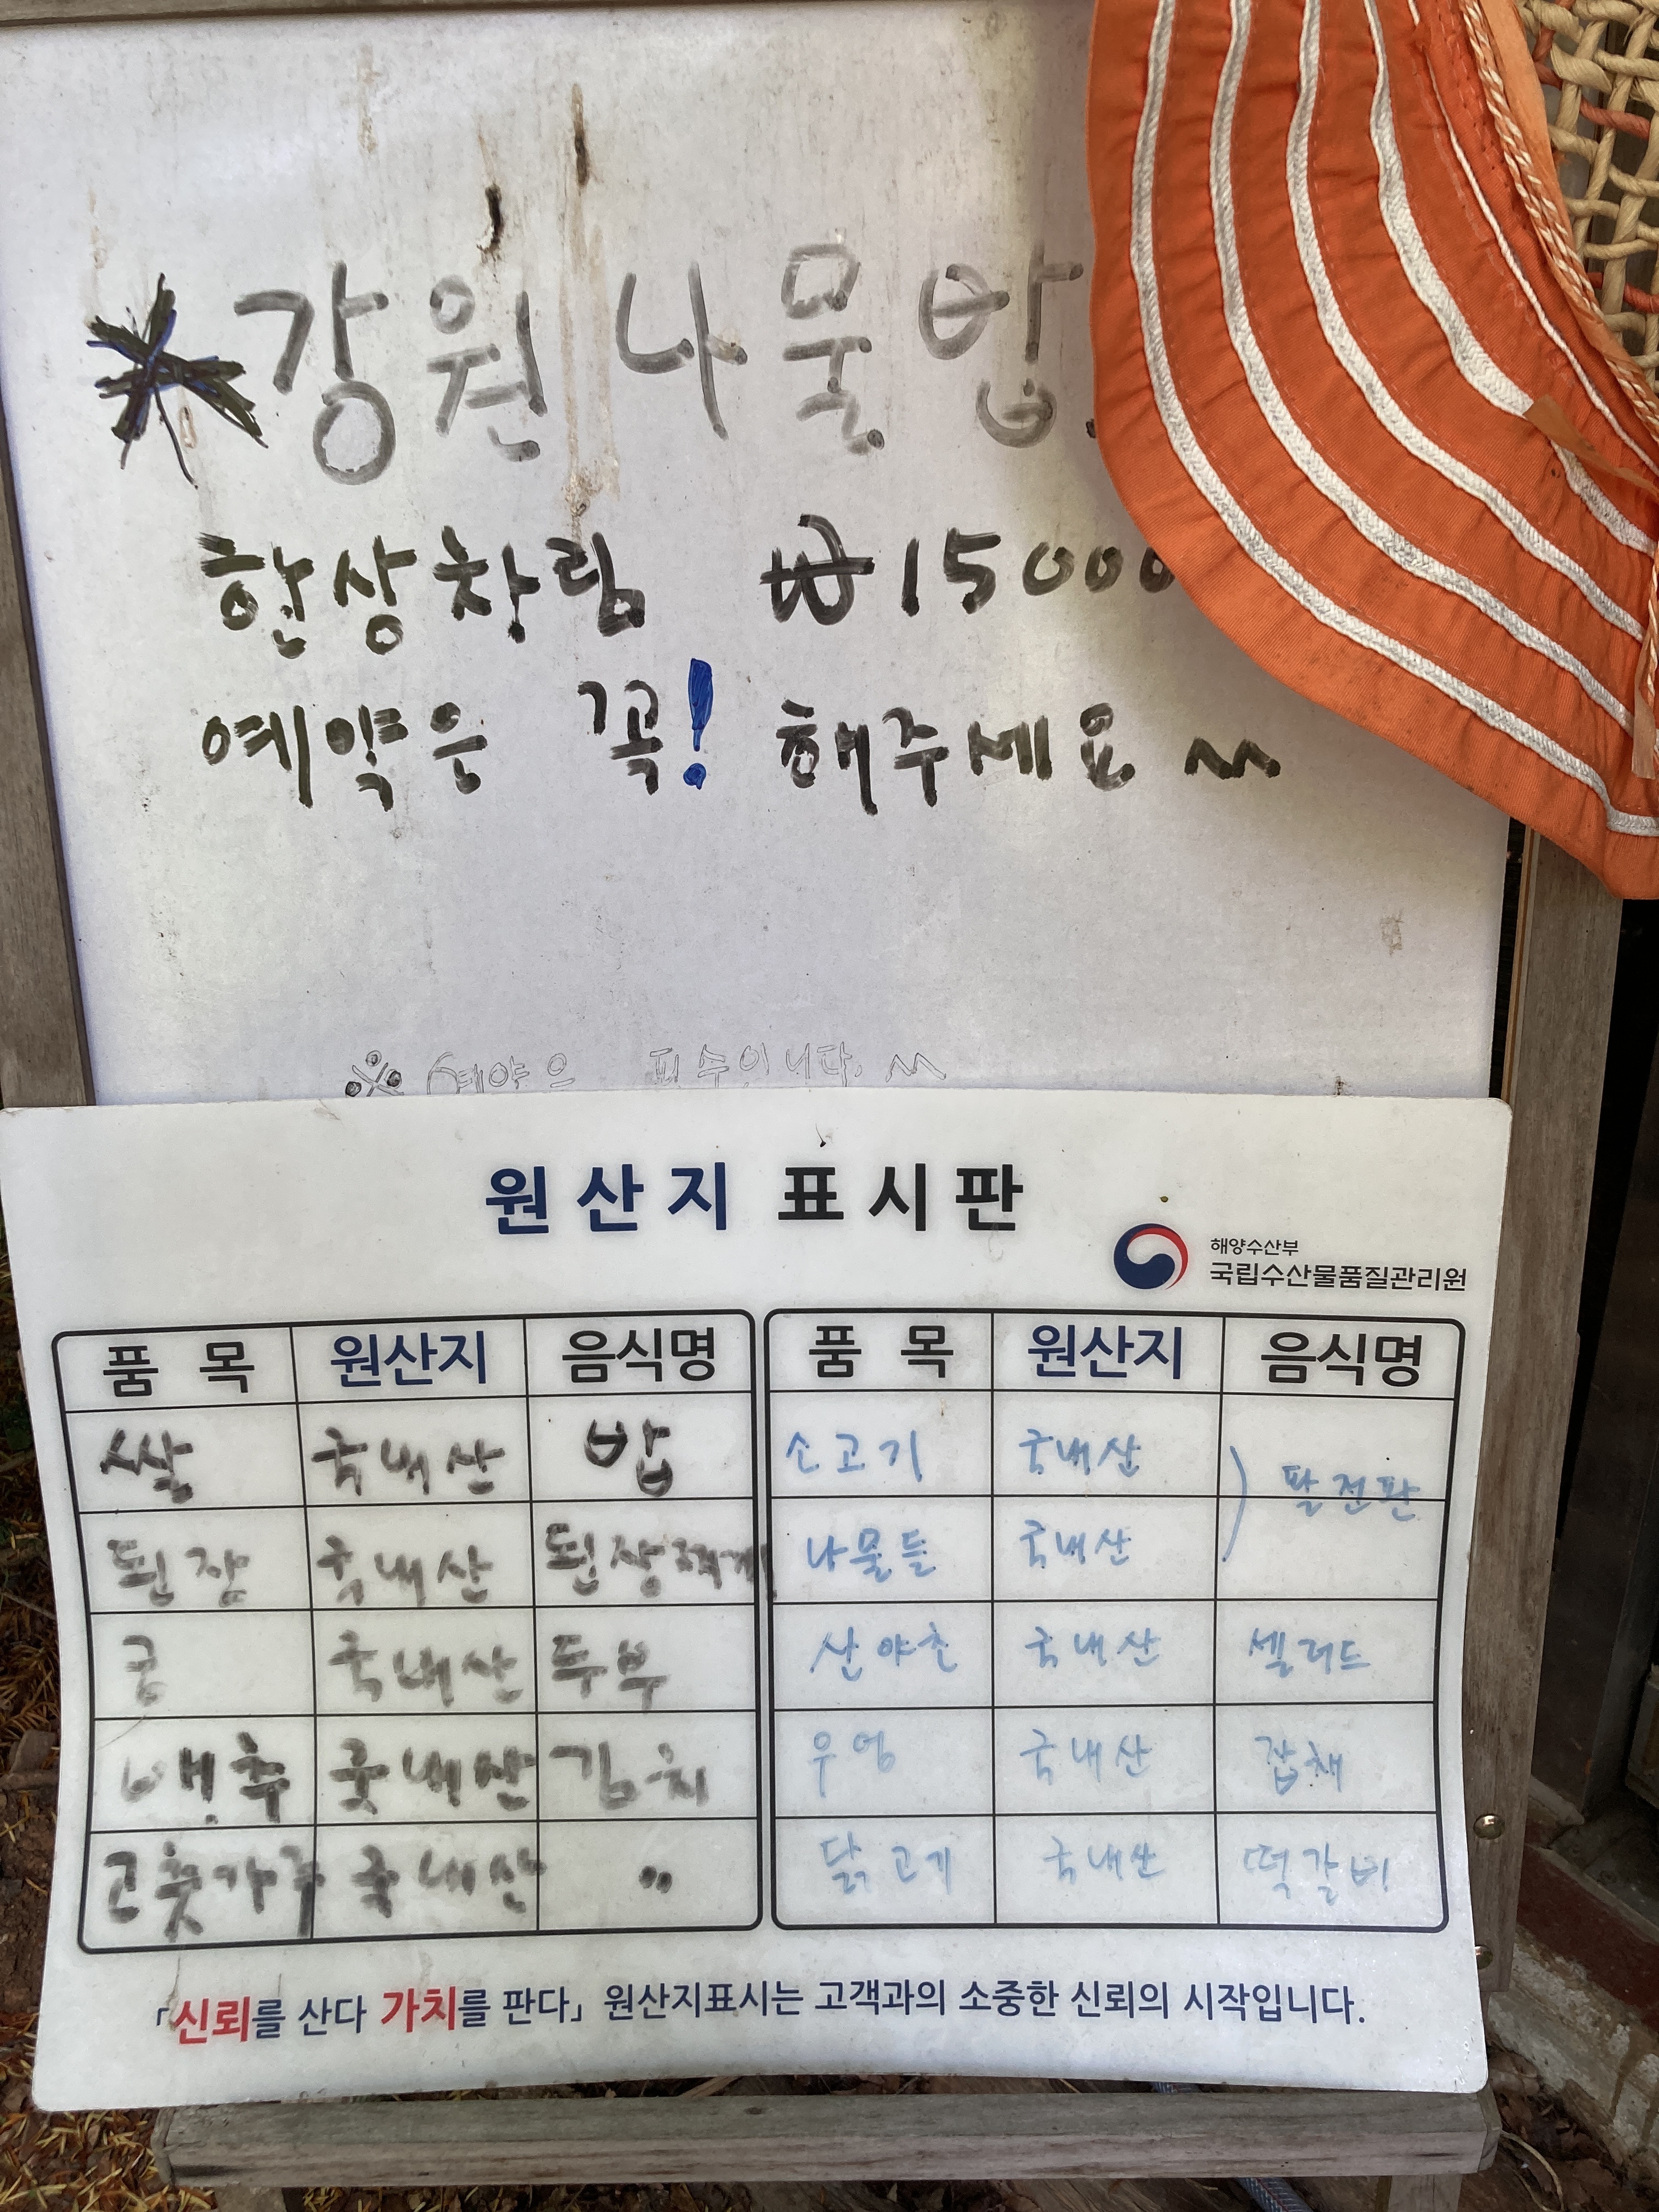 강원나물밥
한상차림 ₩15000
예약은 꼭! 해주세요 ^^
※ 예약은 필수입니다. ^^
원산지 표시판
해양수산부
국립수산물품질관리원
품 목 원산지 음식명 품 목 원산지 음식명
쌀 국내산 밥 소고기 국내산 팔전판
된장 국내산 된장찌개 나물들 국내산
콩 국내산 두부 산야초 국내산 셀러드
배추 국내산 김치 우엉 국내산 잡채
고춧가루 국내산 〃 닭고기 국내산 떡갈비
「신뢰를 산다 가치를 판다」 원산지표시는 고객과의 소중한 신뢰의 시작입니다.